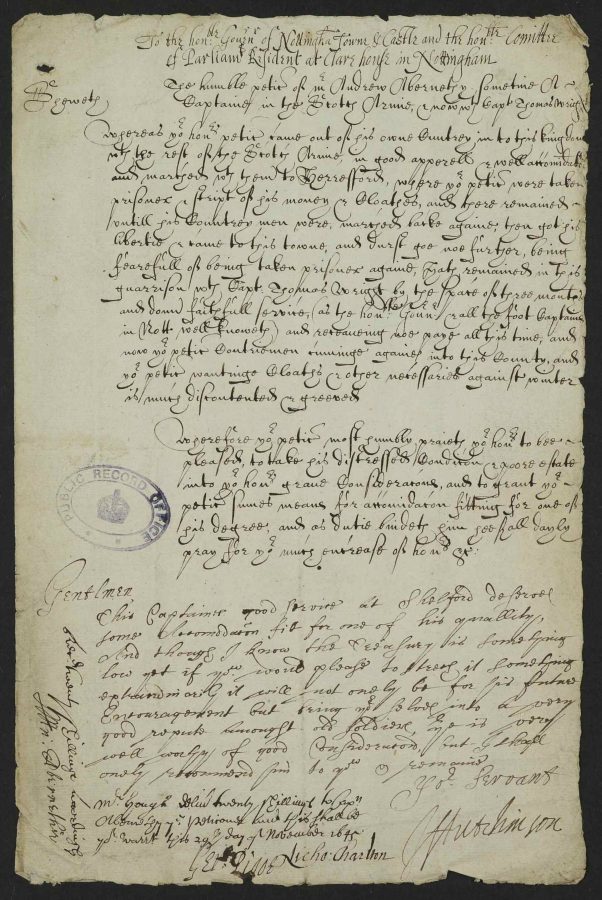 To the hon:ble Gour of Nottingha Towne & Castle and the hon:ble Comittee
of Parliamt Resident at Clare house in Nottingham
The humble peticon of mr Andrew Abernethy sometime A
Sheweth
Captaine in the Scotts Armie, & now wth Capt Thomas Wright
Whereas yor honrs petir came out of his owne Cuntrey in to this kingdome
wth the rest of the Scotts Armie in good apperell & well accomidated
and marched wth them to Herrefford, where yor petir were taken
prisoner & stript of his money & Cloathes, and there remained
untill his Countrey men were marched backe againe, then got his
libertie & came to this towne, and durst goe noe further, being
fearefull of being taken prisoner againe, hath remained in this
guarrison wth Capt Thomas Wright by the space of three months
and donn faithfull service, (as the hon: Gour & all the foot Captains
in Nott well knoweth) and receaveing noe paye all this time, and
now yor petir Contriemen cuminge againe into this County, and
yor petir wantinge Cloaths & other necessaries against winter
is much discontented & greeved
Wherefore yor petir most humbly praieth yor honrs to bee
pleased, to take his distressed Condicon & poore estate
into yor honrs grave Consideracons, and to grant yor
petir sumes means for accomidacon fitting for one of
his degree, and as dutie bindeth him hee shall dayly
pray for yor much encrease of honr &c:
PUBLIC RECORD OFFICE
Gentlmen
This Captaines good service at Shelford deserves
some Accomodacon fit for one of his quallity,
And though I know the Treasury is something
low yet if you would please to strech it something
extraordinary it will not onely be for his future
Encouragement but bring your selves into a very
good repute amongst old soldiers, hee is very
well worthy of good Consideracon, but I shall
onely recommend him to you & remaine
Yor Servant
JHutchinson
Mr Hough deliver twenty shillings to Capt
Abernethy ye Peticoner and this shalbe
yor warrt this 29th day of November 1645
Ger: Pigot Nicho: Charlton
twenty shillings accordingly
Abernethie